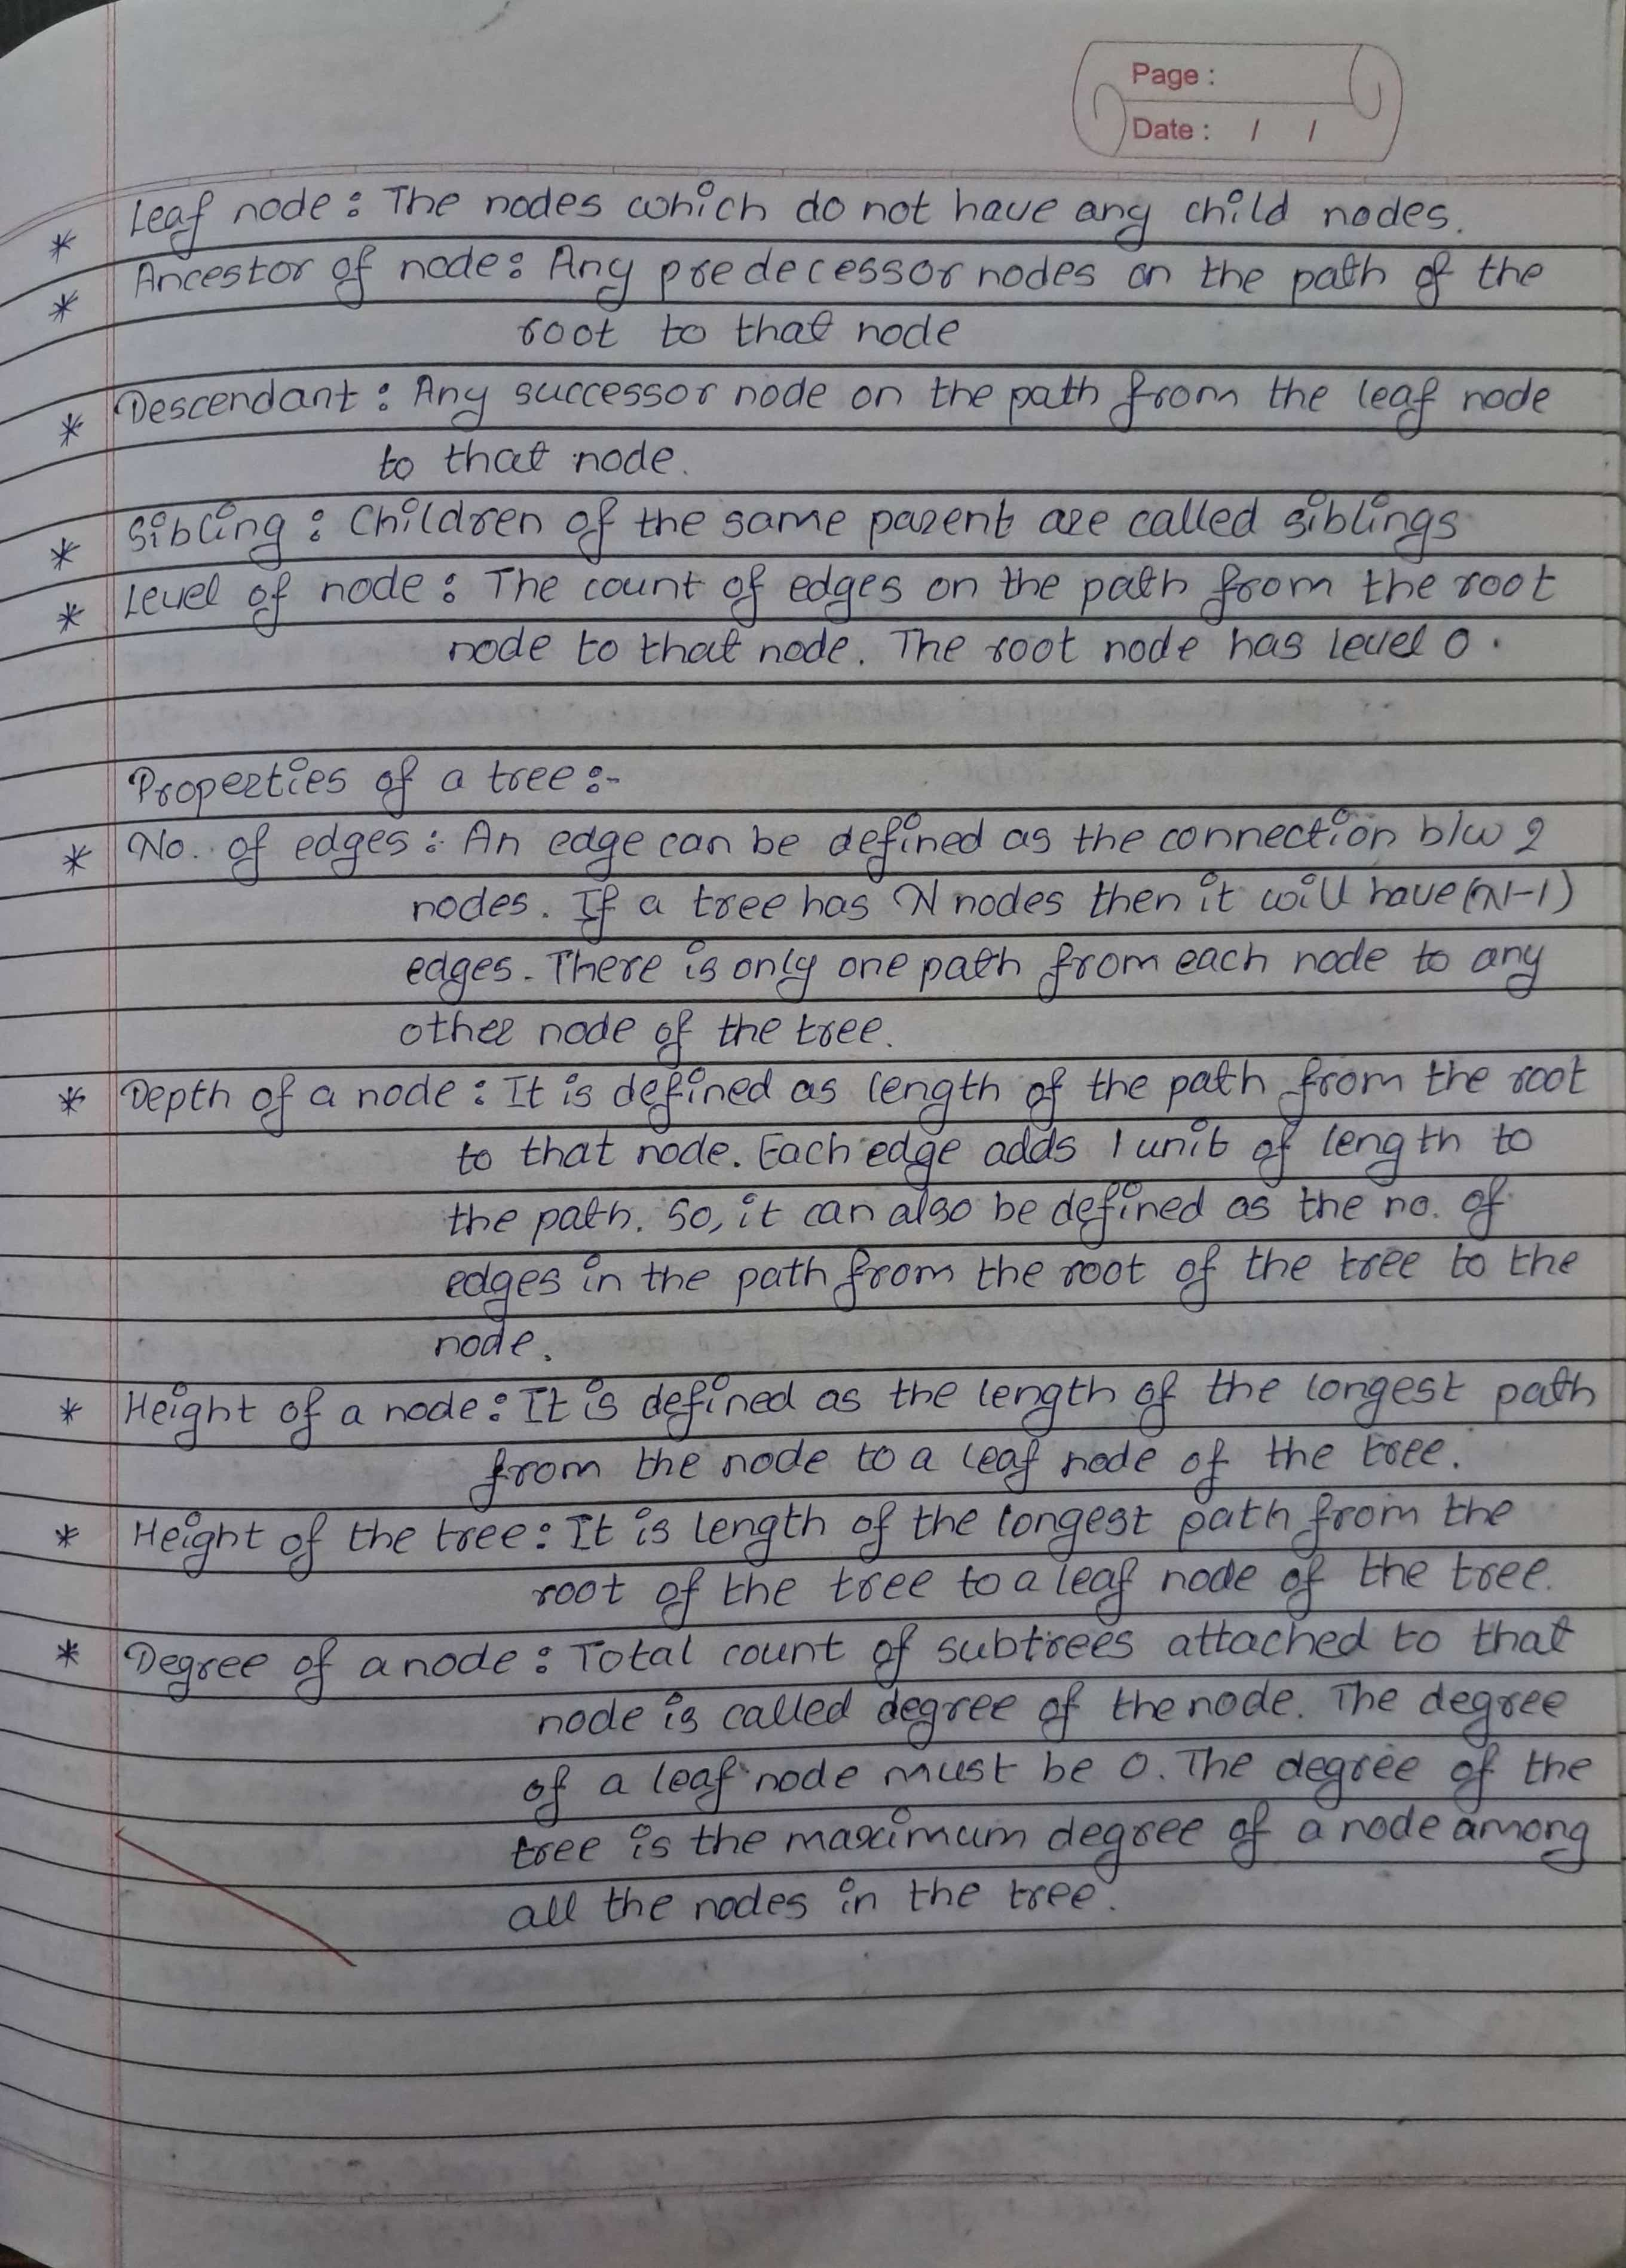 Page :
Date : / /
* Leaf node : The nodes which do not have any child nodes.
* Ancestor of node : Any predecessor nodes on the path of the
root to that node
* Descendant : Any successor node on the path from the leaf node
to that node.
* Sibling : Children of the same parent are called siblings
* Level of node : The count of edges on the path from the root
node to that node. The root node has level 0.
Properties of a tree :-
* No. of edges : An edge can be defined as the connection b/w 2
nodes. If a tree has N nodes then it will have (N-1)
edges. There is only one path from each node to any
other node of the tree.
* Depth of a node : It is defined as length of the path from the root
to that node. Each edge adds 1 unit of length to
the path. So, it can also be defined as the no. of
edges in the path from the root of the tree to the
node.
* Height of a node : It is defined as the length of the longest path
from the node to a leaf node of the tree.
* Height of the tree : It is length of the longest path from the
root of the tree to a leaf node of the tree.
* Degree of a node : Total count of subtrees attached to that
node is called degree of the node. The degree
of a leaf node must be 0. The degree of the
tree is the maximum degree of a node among
all the nodes in the tree.